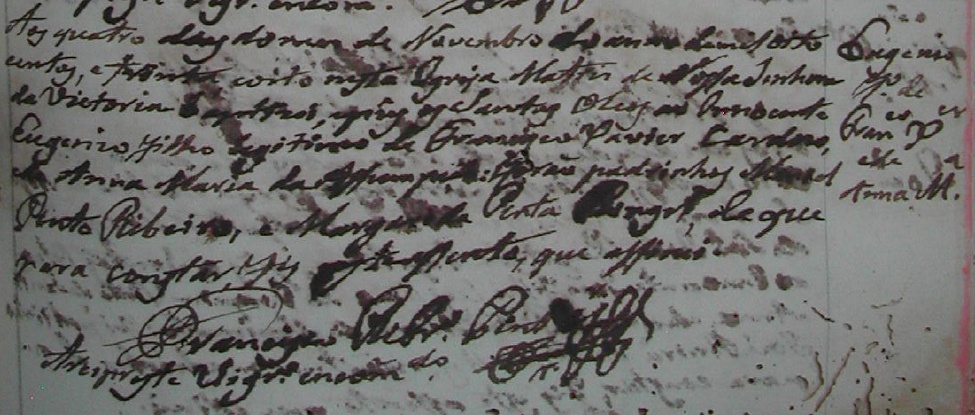 Vigr. encom.
Aos quatro dias do mez de Novembro do anno de mil oito
centos, e trinta e oito nesta Igreja Matriz de Nossa Senhora
da Victoria baptizei, e puz os Santos Oleos ao innocente
Eugenio filho legitimo de Francisco Xavier Cardozo,
e Anna Maria da Assumpção: forão padrinhos Manoel
Pinto Ribeiro, e Margarida Pinta Rangel, do que
para constar fiz este assento, que assinei
Francisco Ribr.
Arcipreste Vigr. encom.do
Eugenio
fo. de
Fran.co X.er
e de
Anna M.a